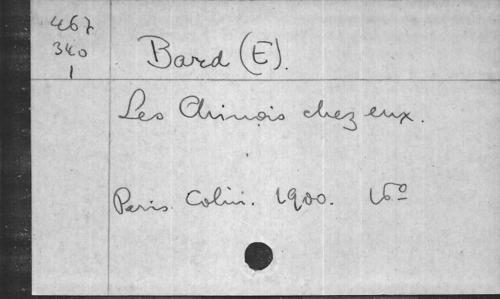 467
340
1
Bard (E).
Les Chinois chez eux.
Paris. Colin. 1900. 16º